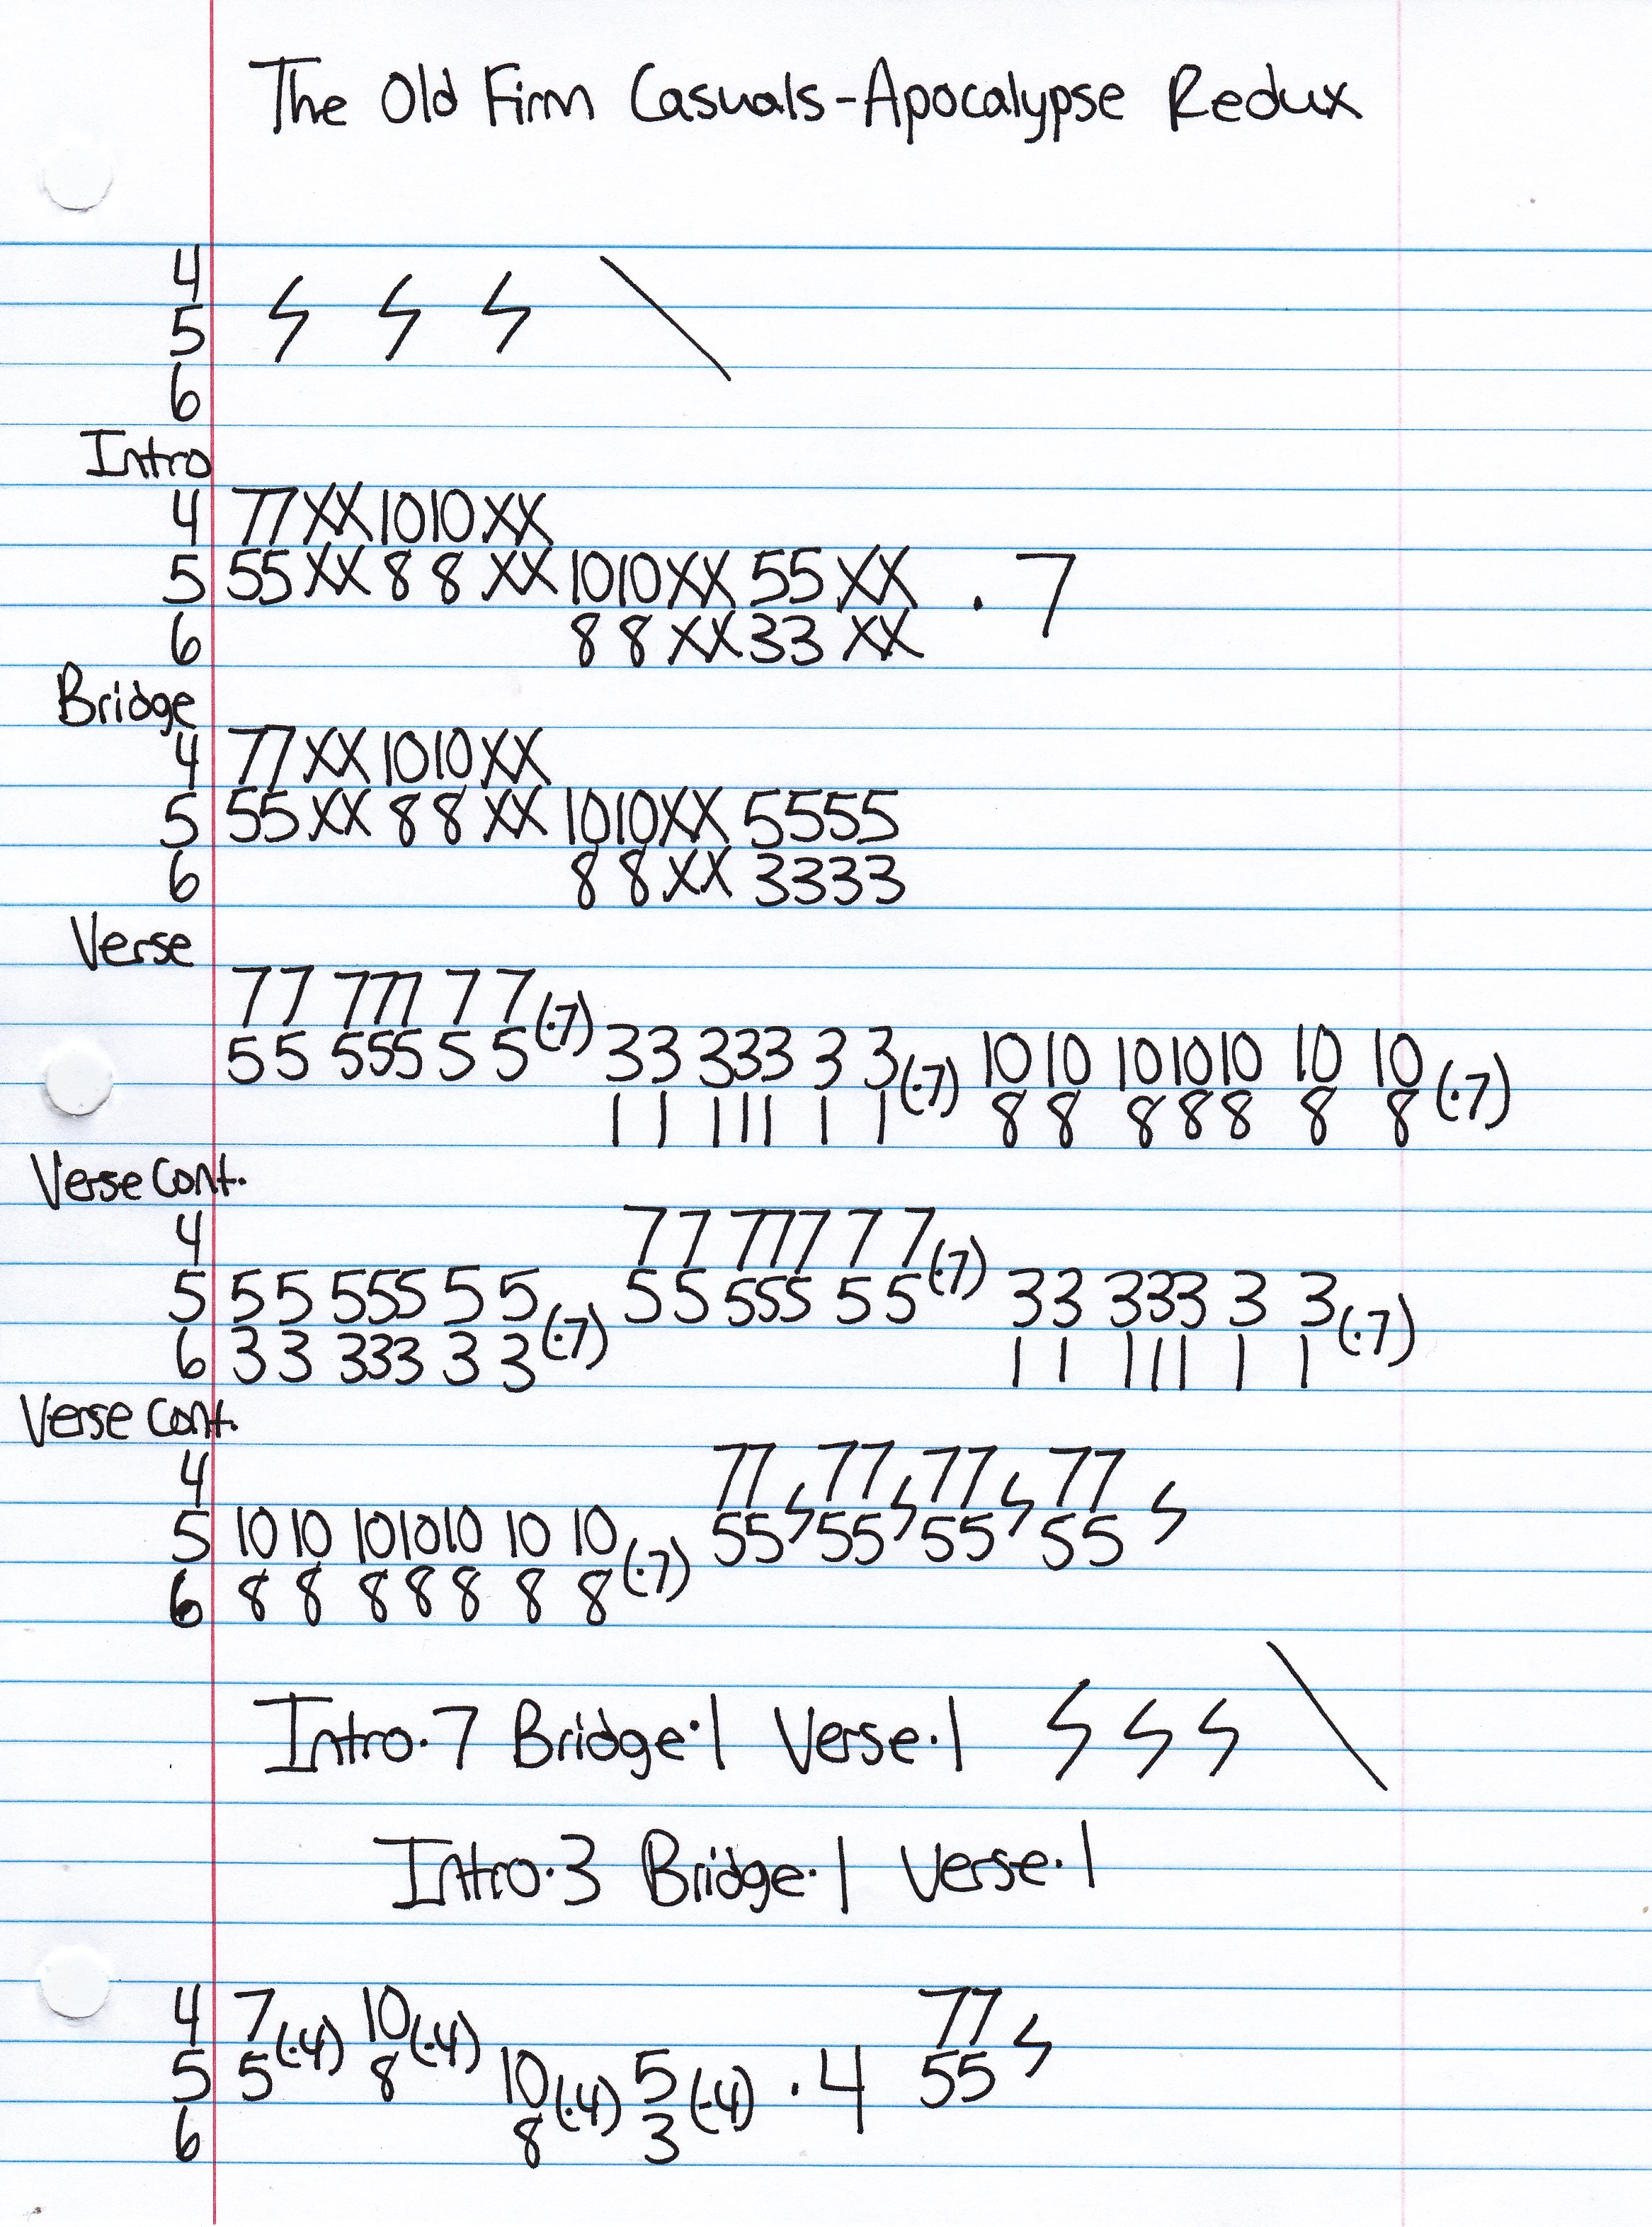 The Old Firm Casuals-Apocalypse Redux
4
5
6
Intro
4 77XX1010XX
5 55XX88XX1010XX55XX · 7
6 88XX33XX
Bridge
4 77XX1010XX
5 55XX88XX1010XX5555
6 88XX3333
Verse
77 777 7 7(·7)
55 555 5 5 33 333 3 3(·7) 10 10 101010 10 10(·7)
11 111 1 1 8 8 888 8 8
Verse Cont.
4 77 777 7 7(·7)
5 55 555 5 5(·7) 55 555 5 5 33 333 3 3(·7)
6 33 333 3 3 11 111 1 1
Verse Cont.
4 77 77 77 77
5 10 10 101010 10 10(·7) 55 55 55 55
6 8 8 888 8 8
Intro·7 Bridge·1 Verse·1
Intro·3 Bridge·1 Verse·1
4 7(·4) 10(·4) 77
5 5 8 10(·4) 5(·4) · 4 55
6 8 3